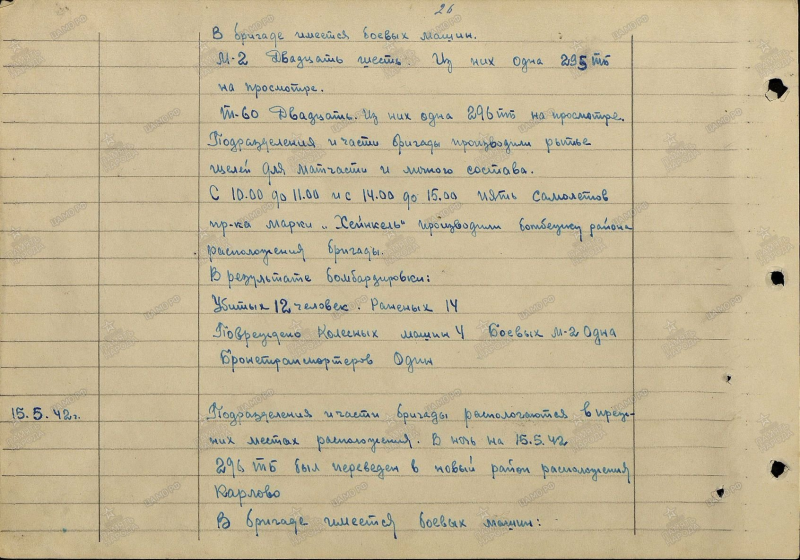 26
В бригаде имеется боевых машин.
М-2 Двадцать шесть. Из них одна 295 тб
на просмотре.
Т-60 Двадцать. Из них одна 296 тб на просмотре.
Подразделения и части бригады производили рытье
щелей для матчасти и личного состава.
С 10.00 до 11.00 и с 14.00 до 15.00 пять самолетов
пр-ка марки „Хейнкель" производили бомбежку района
расположения бригады.
В результате бомбардировки:
Убитых 12 человек. Раненых 14
Повреждено Колесных машин 4 Боевых М-2 Одна
Бронетранспортеров Один
15.5.42г. Подразделения и части бригады распологаются в преж-
них местах расположения. В ночь на 15.5.42
296 ТБ был переведен в новый район расположения
Карлово
В бригаде имеется боевых машин: